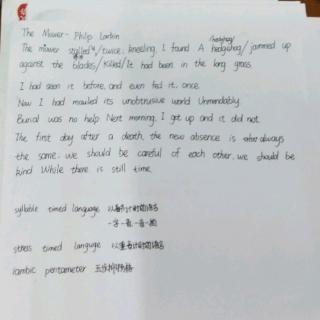 The Mower - Philip Larkin
The mower stalled / twice; kneeling, I found A hedgehog / jammed up
against the blades / killed / It had been in the long grass.
I had seen it before, and even fed it, once.
Now I had mauled its unobtrusive world Unmendably.
Burial was no help Next morning I got up and it did not.
The first day after a death, the new absence is always
the same. we should be careful of each other. we should be
kind While there is still time.
syllable timed language
一字一音,一音一顿
stress timed language 以重音计时的语言
Iambic pentameter 五步抑扬格